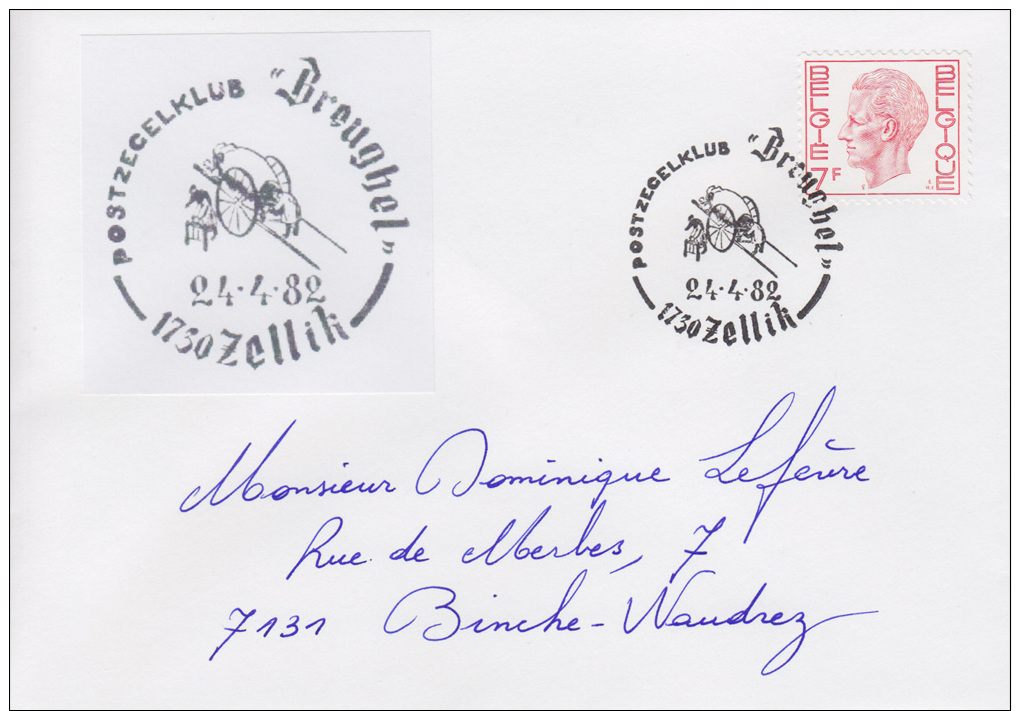 POSTZEGELKLUB "Breughel"
24·4·82
1730 Zellik
POSTZEGELKLUB "Breughel"
24·4·82
1730 Zellik
BELGIË BELGIQUE
7F
Monsieur Dominique Lefèvre
Rue de Merbes, 7
7131 Binche-Waudrez